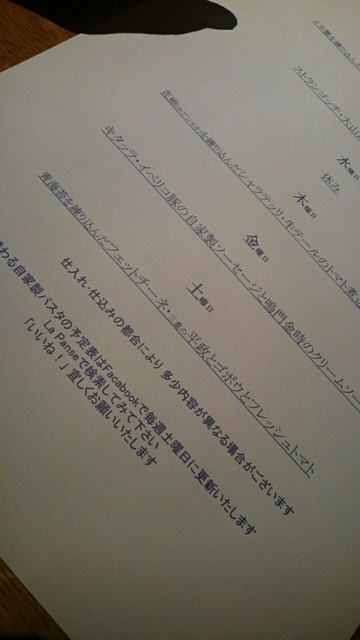 イカ墨を練り込んだ
ストランゴッチ・大山
水曜日
休み
木曜日
を練り込んだシャラテッリ・牛テールのトマト煮
金曜日
キタッラ・イベリコ豚の自家製ソーセージと鳴門金時のクリームソー
土曜日
青海苔を練り込んだフェットチーネ・三重の平政とゴボウとフレッシュトマト
仕入れ・仕込みの都合により 多少内容が異なる場合がございます
わる自家製パスタの予定表はFacabookで毎週土曜日に更新いたします
La Panseで検索してみて下さい
「いいね！」宜しくお願いいたします